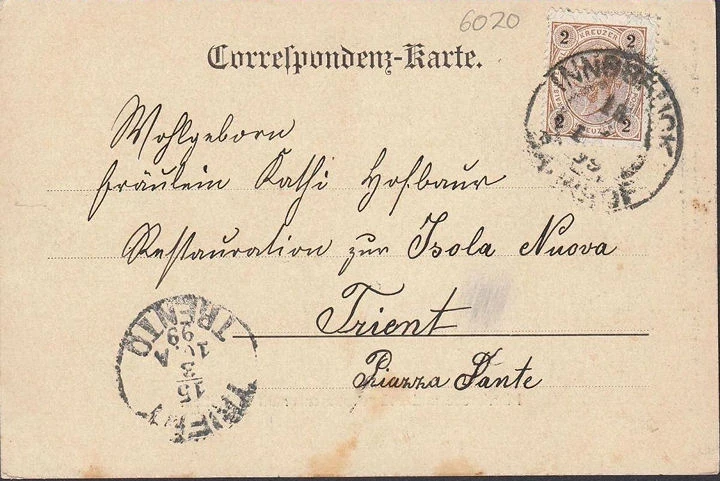 6020
Correspondenz-Karte.
2 KREUZER 2
2 KREUZER 2
INNSBRUCK
99
Wohlgeborn
Fräulein Kathi Hofbaur
Restauration zur Isola Nuova
Trient
Piazza Dante
TRIENT
15
3
99
TRENTO